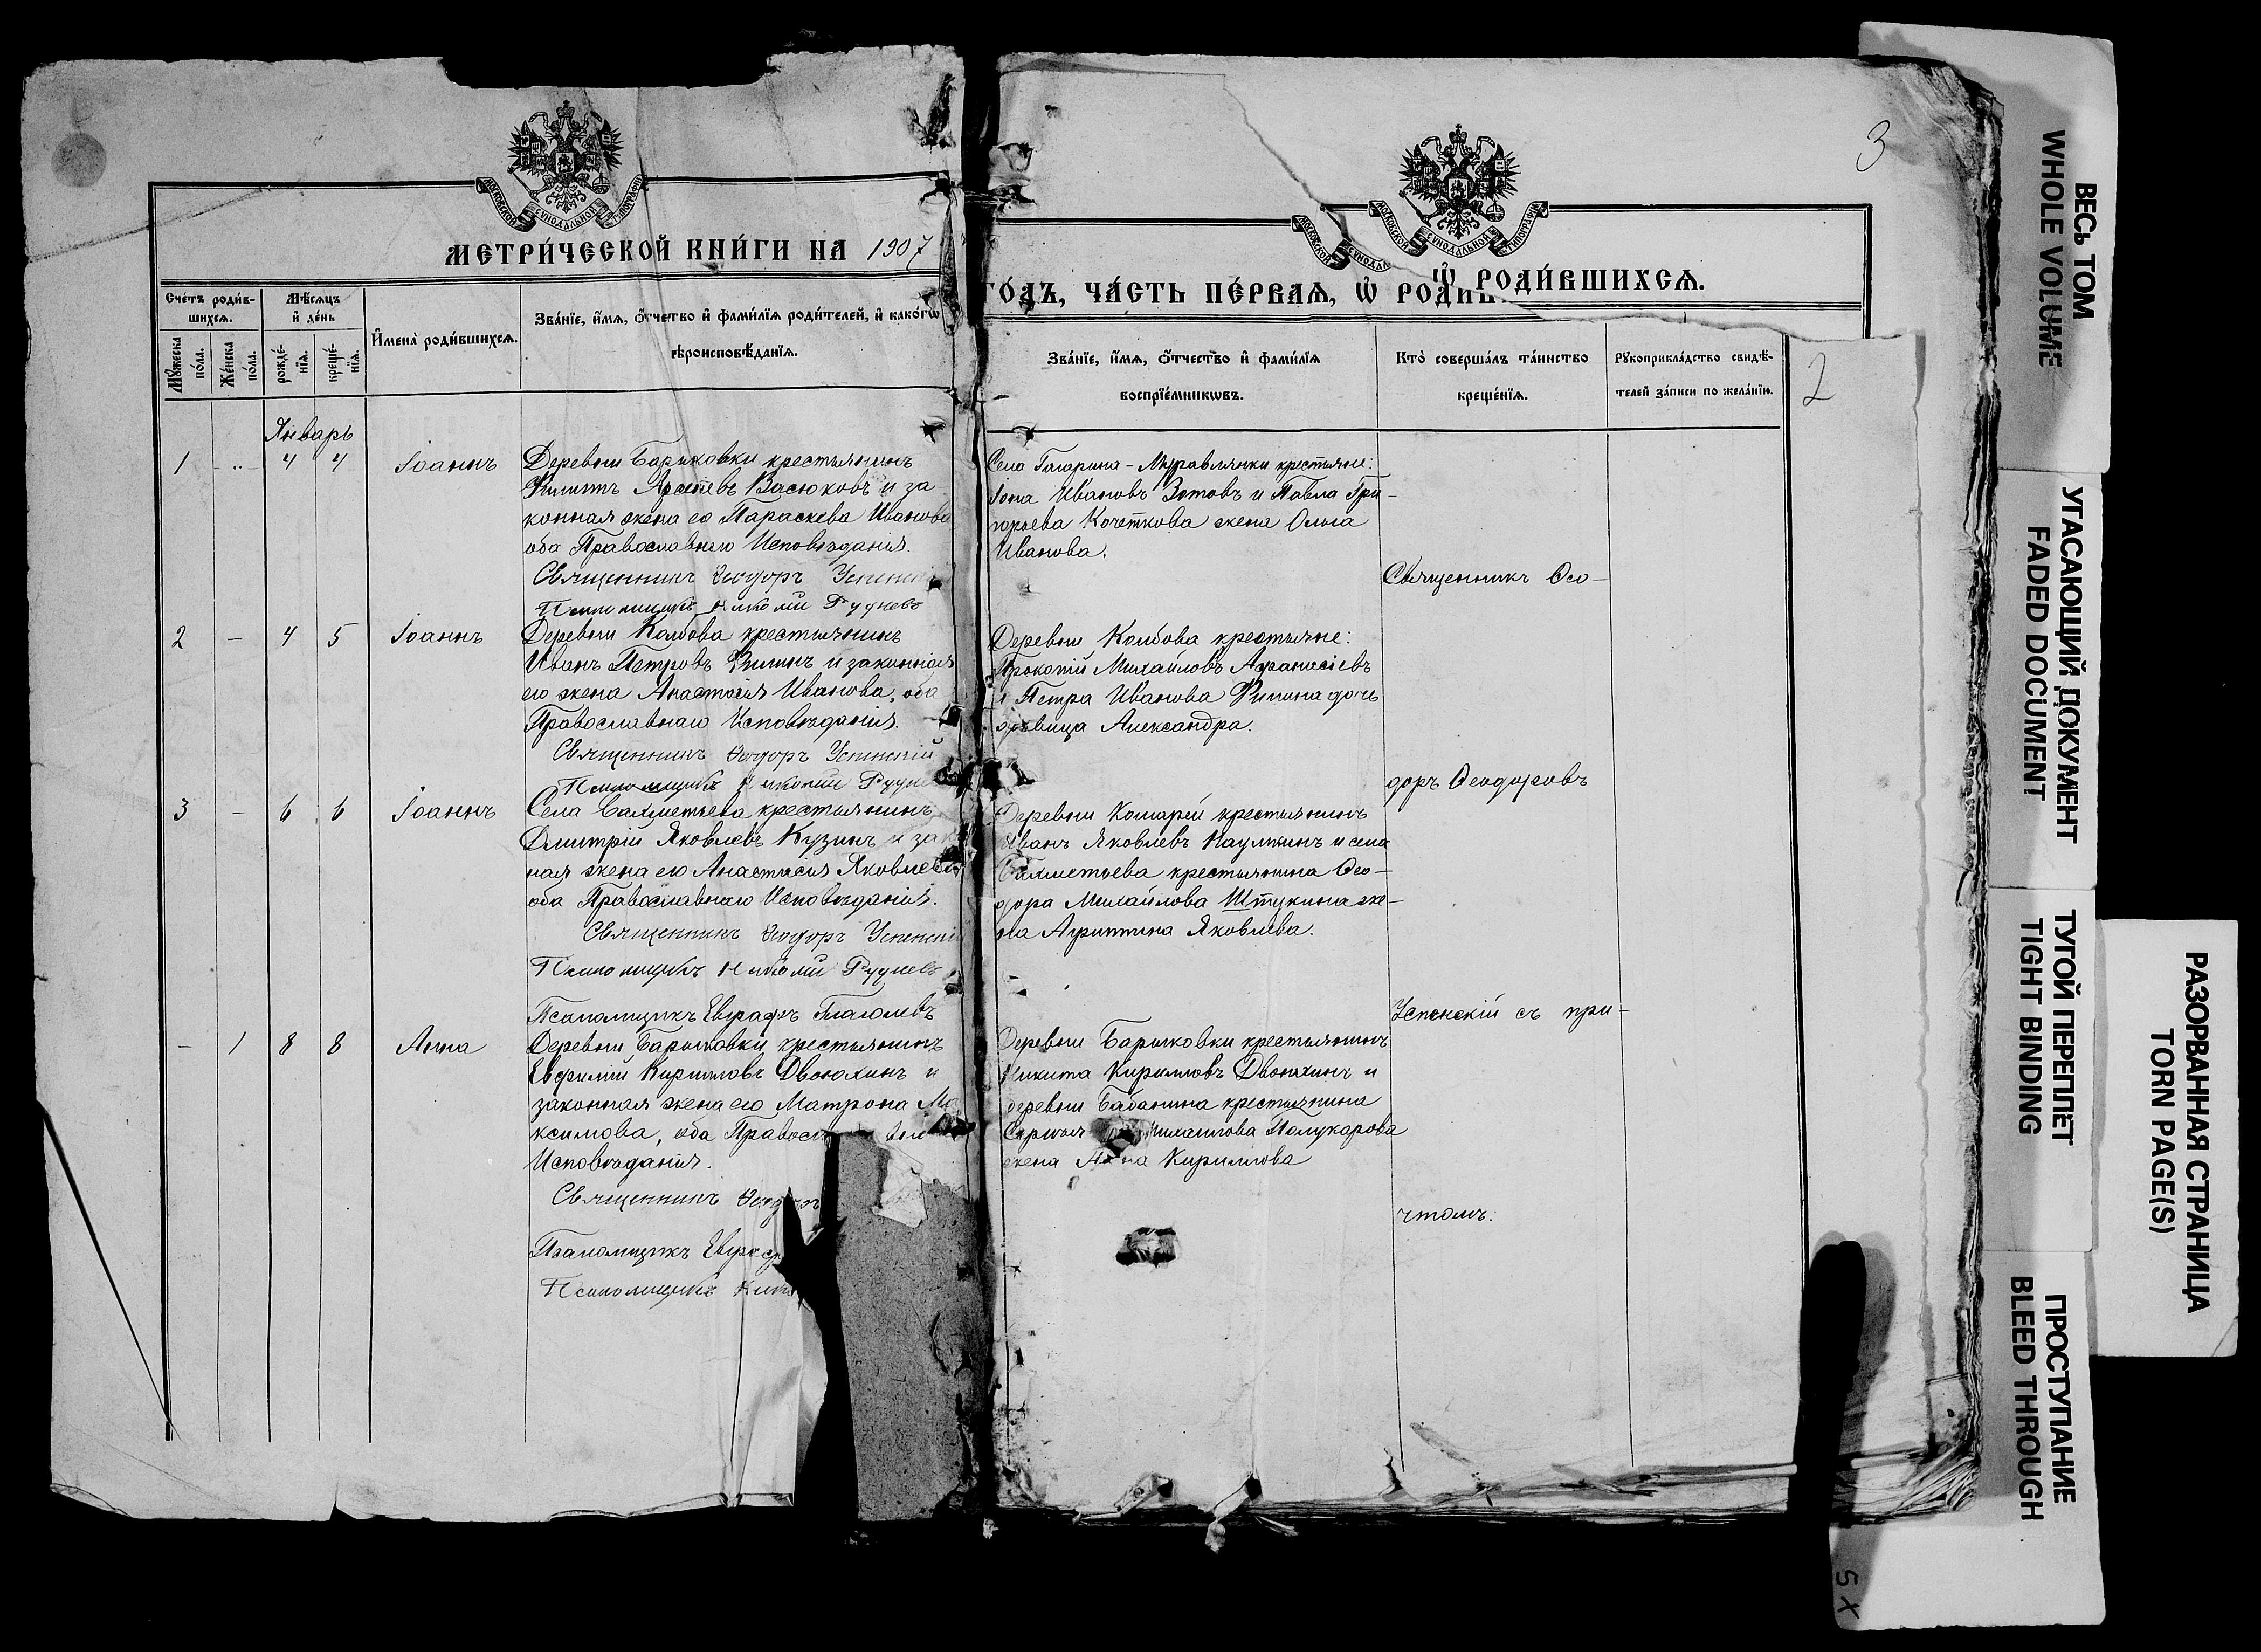 3
МОСКОВСКОЙ СѴНОДАЛЬНОЙ ТИПОГРАФІИ
МОСКОВСКОЙ СѴНОДАЛЬНОЙ ТИПОГРАФІИ
МОСКОВСКОЙ СѴНОДАЛ
МЕТРИ́ЧЕСКОЙ КНИ́ГИ НА 1907
ГО́ДЪ, ЧА́СТЬ ПЕ́РВАЯ, Ѡ҆ РОДИ́В
Ѡ҆ РОДИ́ВШИХСЯ.
Сче́тъ роди́в-
шихся.
Мѣ́сяцъ
и҆ де́нь
Му́жеска
по́ла.
Же́нска
по́ла.
рожде́-
нїя.
креще́-
нїя.
И҆мена̀ роди́вшихся.
Зва́нїе, и҆́мя, ѻ҆́тчество и҆ фами́лїя роди́телей, и҆ како́гѡ
вѣроисповѣ́данїя.
Зва́нїе, и҆́мя, ѻ҆́тчество и҆ фами́лїя
воспрїе́мникѡвъ.
Кто̀ соверша́лъ та́инство
креще́нїя.
Рукоприкла́дство свидѣ́-
телей за́писи по жела́нїю.
2
Январь
1 - 4 4 Іоаннъ
Деревни Барыковки крестьянинъ
Филиппъ Васюковъ и за
конная жена ео Параскева Иванова
оба Православнаго Исповѣданія.
Священникъ Ѳеодоръ Успенскій
Псаломщикъ Николай Рудневъ
Села Гагарина-Муравлянки крестьяне:
Іона Ивановъ Зотовъ и Павла Гри-
горьева Кочеткова жена Ольга
Иванова.
Священникъ Ѳео-
2 - 4 5 Іоаннъ
Деревни Колбова крестьянинъ
Иванъ Петровъ Филинъ и законная
его жена Анастасія Иванова, оба
Православнаго Исповѣданія.
Священникъ Ѳеодоръ Успенскій
Псаломщикъ Николай Рудне
Деревни Колбова крестьяне:
Прокопій Михайловъ Аѳанасіевъ
и Петра Иванова Филина дочь
дѣвица Александра.
доръ Ѳеодоровъ
3 - 6 6 Іоаннъ
Села Бахметьева крестьянинъ
Дмитрій Яковлевъ Кузинъ и зак
ная жена его Анастасія Яковлева
оба Православнаго Исповѣданія.
Священникъ Ѳеодоръ Успенскій
Псаломщикъ Николай Рудневъ
Псаломщикъ Евграфъ Глаголевъ
Деревни крестьянинъ
Иванъ Яковлевъ Наумкинъ и села
Бахметьева крестьянина Ѳео-
дора Михайлова Штукина же-
на Агриппина Яковлева.
Успенскій съ при-
- 1 8 8 Анна
Деревни Барыковки крестьянинъ
Евѳимій Кирилловъ Двоюхинъ и
законная жена его Матрона Ма
ксимова, оба Правосл
Исповѣданія.
Священникъ Ѳеод
Псаломщикъ Евграф
Псаломщикъ Нико
Деревни Барыковки крестьянинъ
Никита Кирилловъ Двоюхинъ и
деревни Бабанина крестьянина
Михаилова Поликарова
жена Анна Кириллова
чтомъ.
ВЕСЬ ТОМ
WHOLE VOLUME
УГАСАЮЩИЙ ДОКУМЕНТ
FADED DOCUMENT
ТУГОЙ ПЕРЕПЛЕТ
TIGHT BINDING
РАЗОРВАННАЯ СТРАНИЦА
TORN PAGE(S)
ПРОСТУПАНИЕ
BLEED THROUGH
5 X